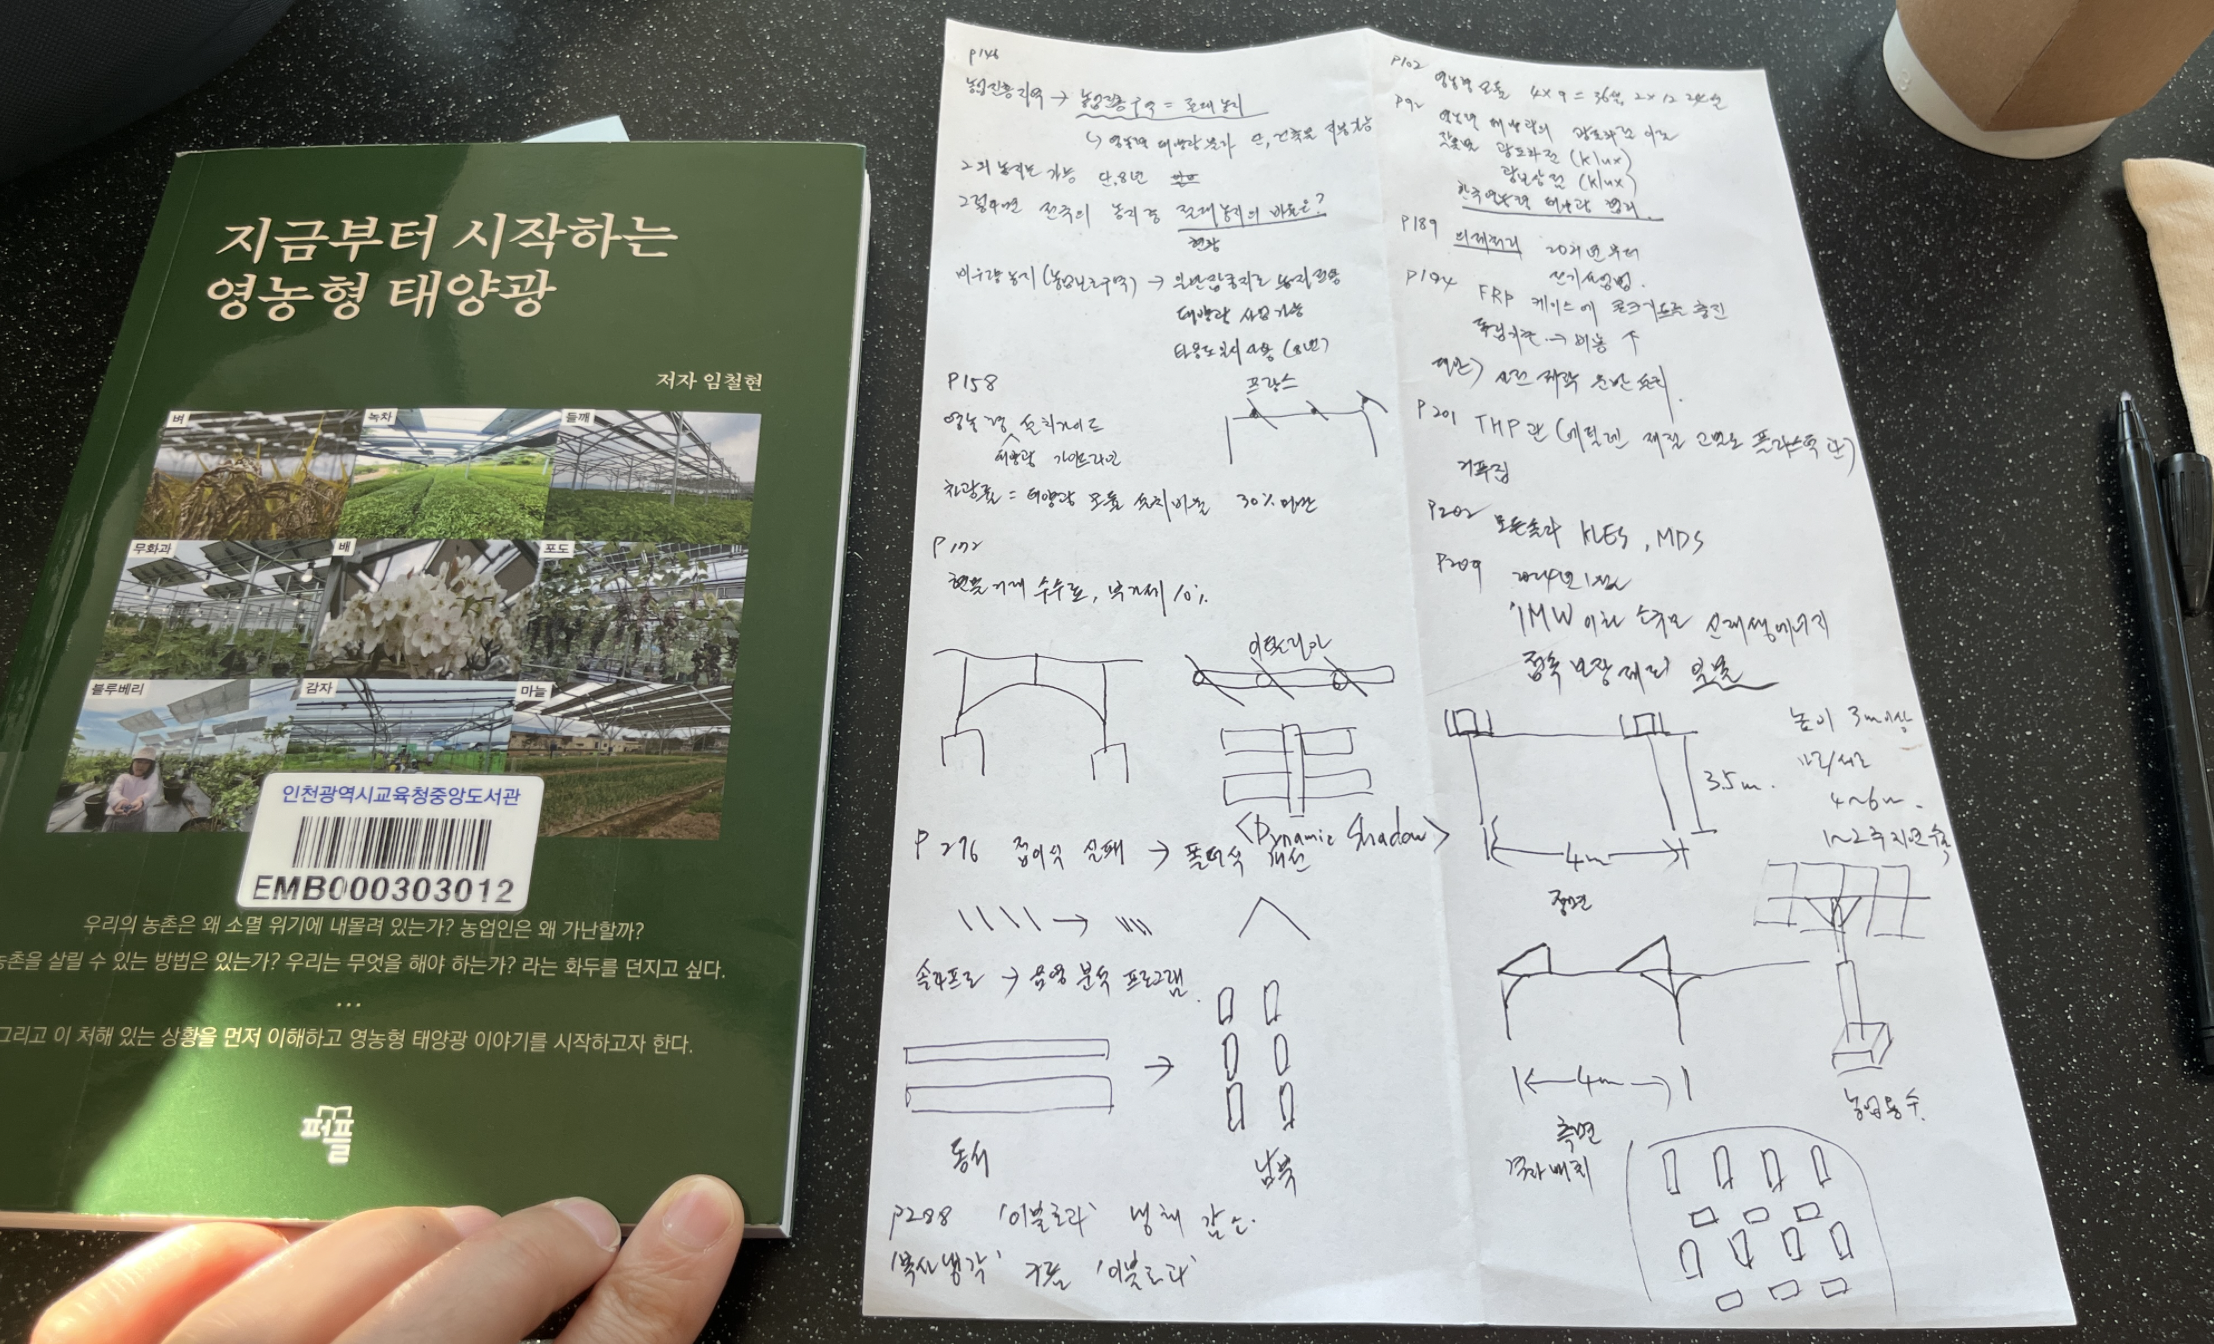 지금부터 시작하는
영농형 태양광
저자 임철현
벼
녹차
들깨
무화과
배
포도
블루베리
감자
마늘
인천광역시교육청중앙도서관
EMB000303012
우리의 농촌은 왜 소멸 위기에 내몰려 있는가? 농업인은 왜 가난할까?
농촌을 살릴 수 있는 방법은 있는가? 우리는 무엇을 해야 하는가? 라는 화두를 던지고 싶다.
...
그리고 이 처해 있는 상황을 먼저 이해하고 영농형 태양광 이야기를 시작하고자 한다.
퍼플
P146
농업진흥지역 → 농업진흥구역 = 절대농지
↳ 영농형 태양광 불가 단, 건축물 지붕
그외 농지는 가능 단, 8년
그렇다면 전국의 농지 중 절대농지의 비율은?
현황
비우량농지 (농업보호구역) → 일반잡종지로 농지전용
태양광 사업가능
타용도 일시사용 (8년)
P158
프랑스
영농형 설치가이드
태양광 가이드라인
차광률 = 태양광 모듈 설치비율 30% 미만
P172
현물거래 수수료, 부가세 10%
이탈리아
<Dynamic Shadow>
P276 접이식 실패 → 폴더식 개선
솔라프로 → 음영 분석 프로그램
동서
남북
P288 '이불효과' 냉해 감소
'복사냉각' 구름 '이불효과'
P102 영농형 모듈 4x9=36셀, 2x12 24셀
P92 영농형 태양광의 광포화점 이론
작물별 광포화점 (klux)
광보상점 (klux)
한국영농형 태양광 협회
P189 의제처리 2021년부터
전기사업법.
P194 FRP 케이스에 콘크리트로 충진
독립기초 → 비용 ↑
대안) 사전 제작 운반 설치
P201 THP관 (에틸렌 재질 고밀도 플라스틱 관)
거푸집
P202 모든솔라 KLES, MDS
P209 2024년 1월
'1MW 이하 소규모 신재생에너지
접속 보장제도' 일몰
높이 3m 이상
가로/세로
4~6m.
1~2주 지연수확
3.5m.
4m
정면
4m
측면
농업용수.
격자배치